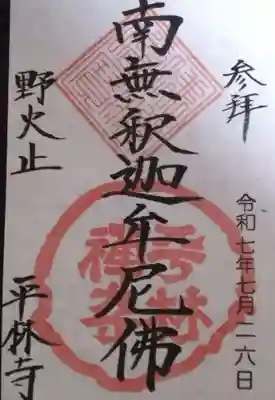 参拝
令和七年七月二六日
南無釈迦牟尼佛
野火止
平林寺